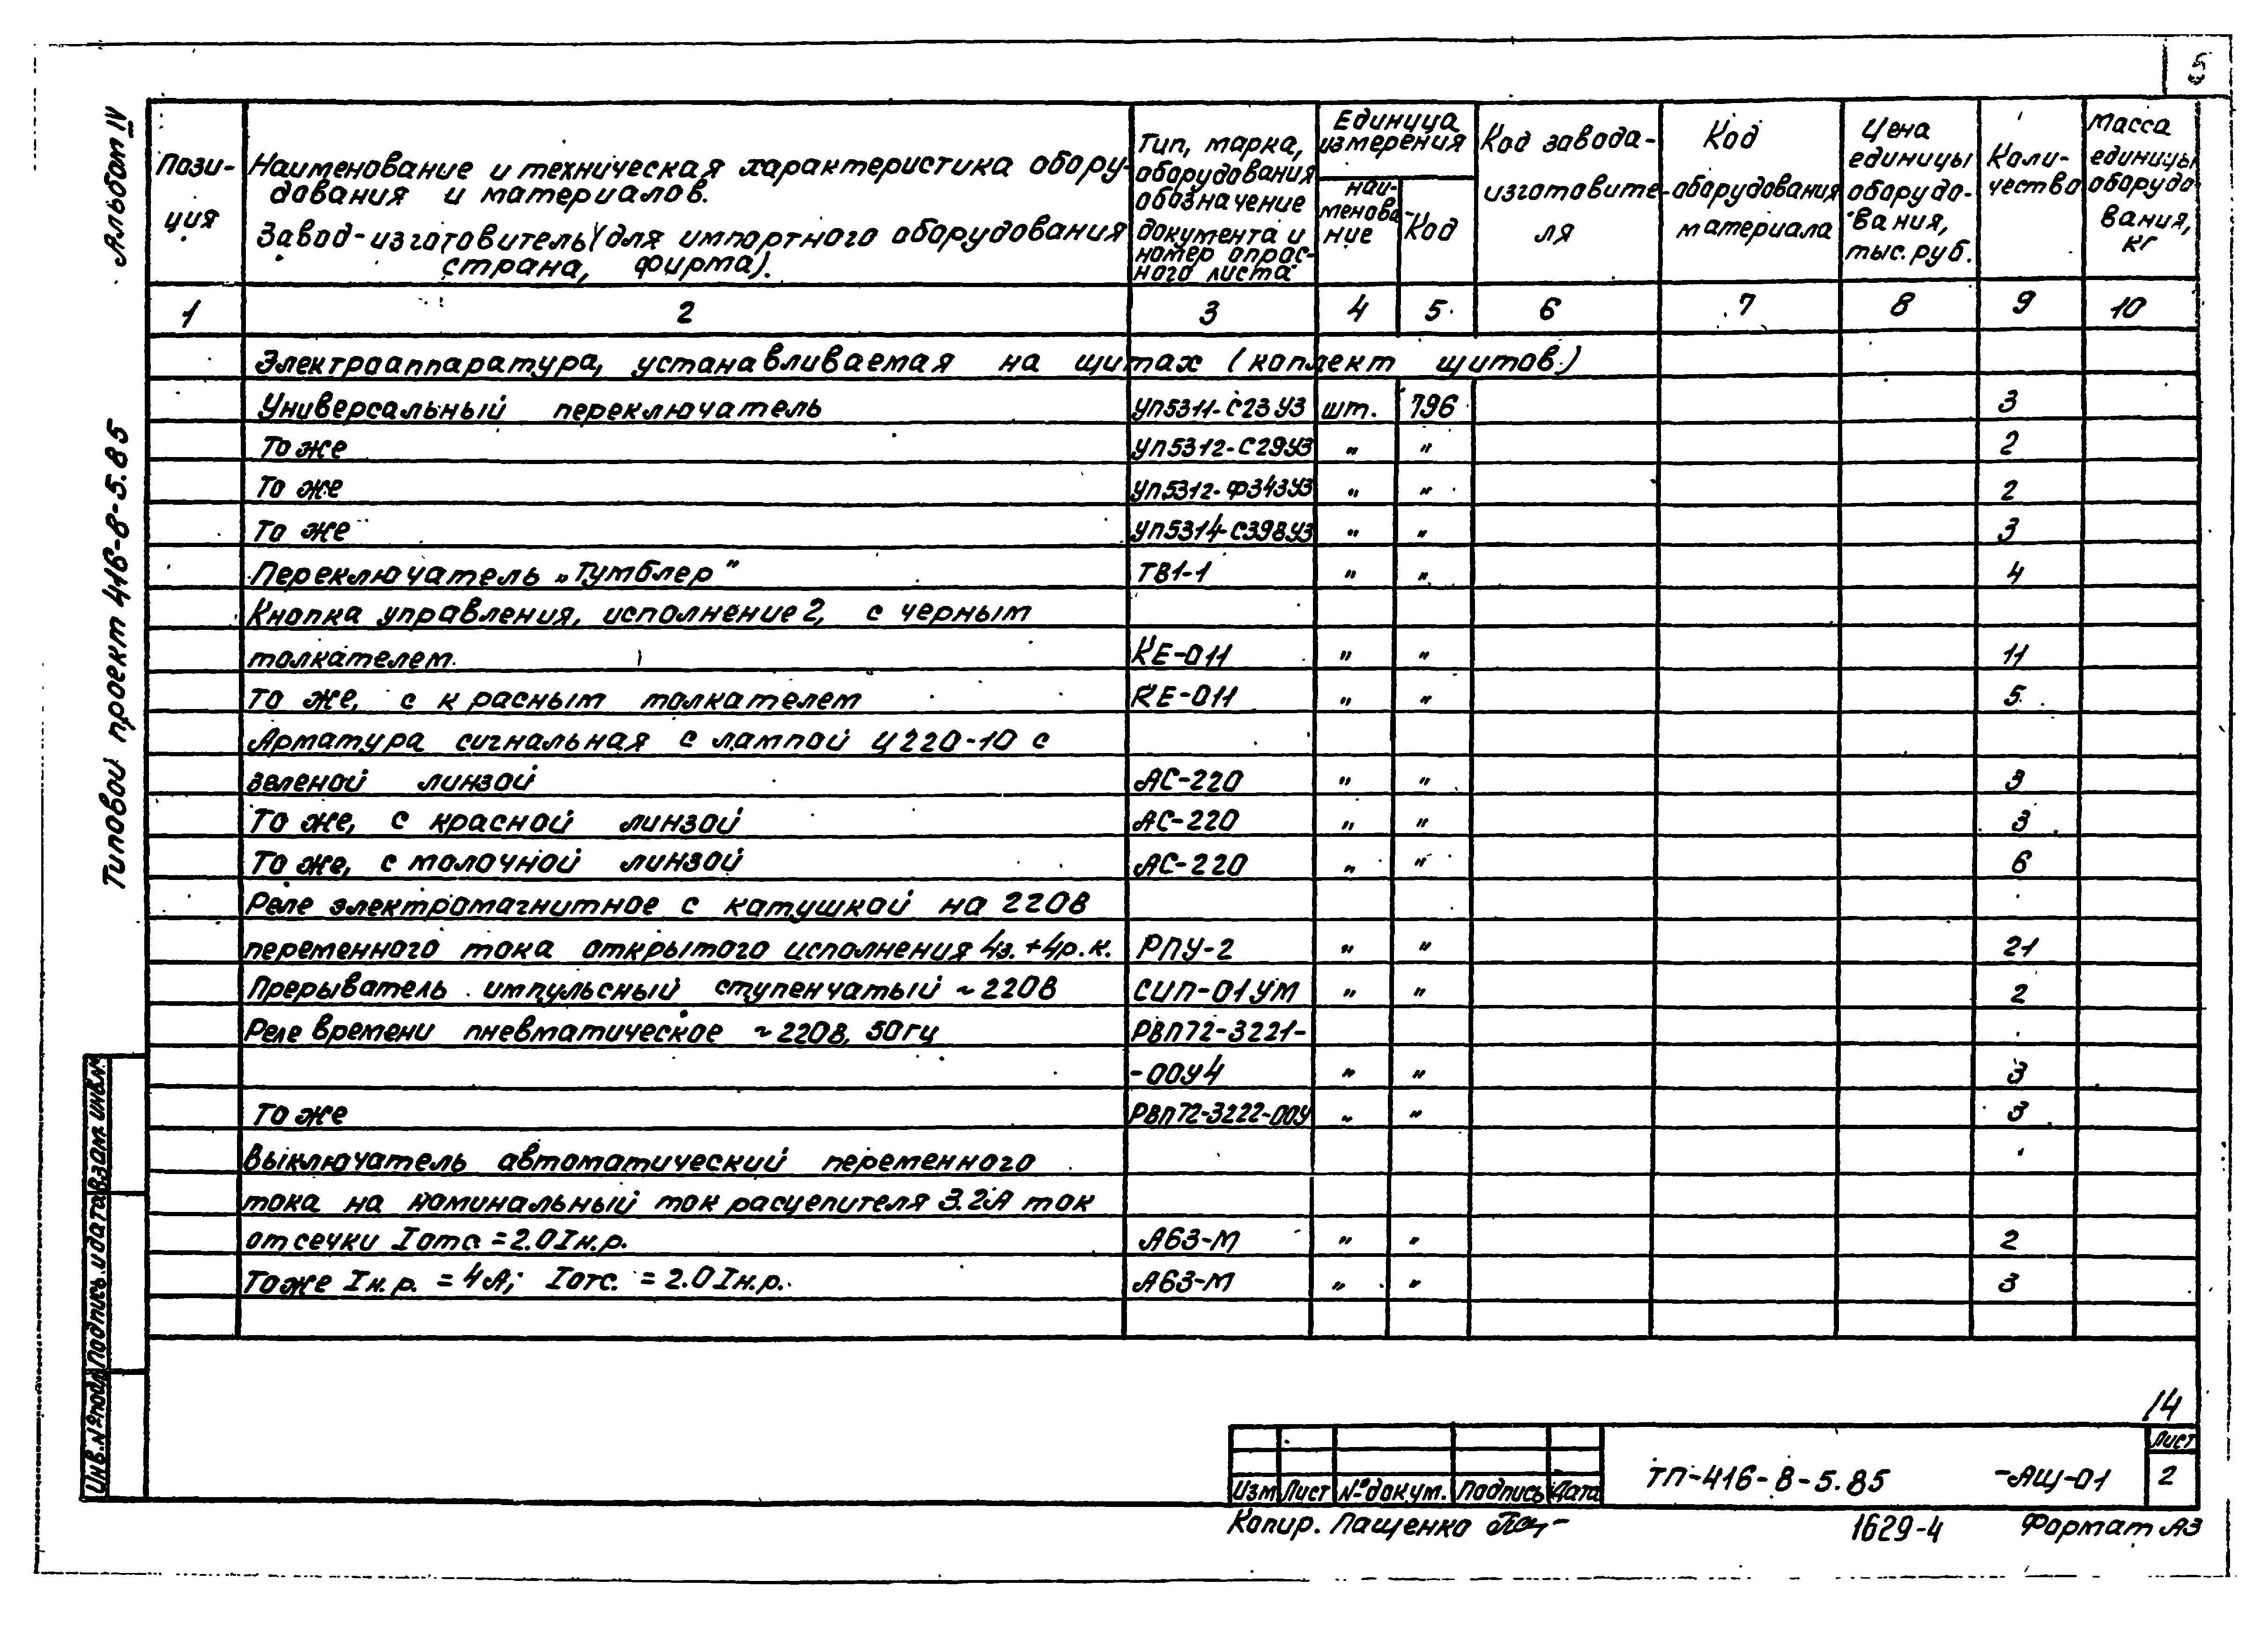 5
Альбом IV
Типовой проект 416-8-5.85
Пози-
ция
Наименование и техническая характеристика обору-
дования и материалов.
Завод-изготовитель (для импортного оборудования
страна, фирма).
Тип, марка,
оборудования
обозначение
документа и
номер опрос-
ного листа
Единица
измерения
наи-
менова-
ние
Код
Код завода-
изготовите-
ля
Код
оборудования
материала
Цена
единицы
оборудо-
вания,
тыс. руб.
Коли-
чество
Масса
единицы
оборудо
вания,
кг
1 2 3 4 5 6 7 8 9 10
Электроаппаратура, устанавливаемая на щитах (коплект щитов)
Универсальный переключатель УП5311-С23У3 шт. 796 3
То же УП5312-С29У3 " " 2
То же УП5312-Ф343У3 " " 2
То же УП5314-С398У3 " " 3
Переключатель „Тумблер" ТВ1-1 " " 4
Кнопка управления, исполнение 2, с черным
толкателем КЕ-011 " " 11
То же, с красным толкателем КЕ-011 " " 5
Арматура сигнальная с лампой Ц220-10 с
зеленой линзой АС-220 " " 3
То же, с красной линзой АС-220 " " 3
То же, с молочной линзой АС-220 " " 6
Реле электромагнитное с катушкой на 220В
переменного тока открытого исполнения 4з.+4р.к. РПУ-2 " " 21
Прерыватель импульсный ступенчатый ~220В СИП-01УМ " " 2
Реле времени пневматическое ~220В, 50гц РВП72-3221-
-00У4 " " 3
То же РВП72-3222-00У " " 3
Выключатель автоматический переменного
тока на номинальный ток расцепителя 3.2А ток
отсечки Iотс = 2.0Iн.р. А63-М " " 2
То же Iн.р. = 4А; Iотс. = 2.0Iн.р. А63-М " " 3
Инв.№подл Подпись и дата Взам. инв.№
14
Изм Лист №докум. Подпись Дата
ТП-416-8-5.85 -АЩ-01
Лист
2
Копир. Пащенко
1629-4
Формат А3